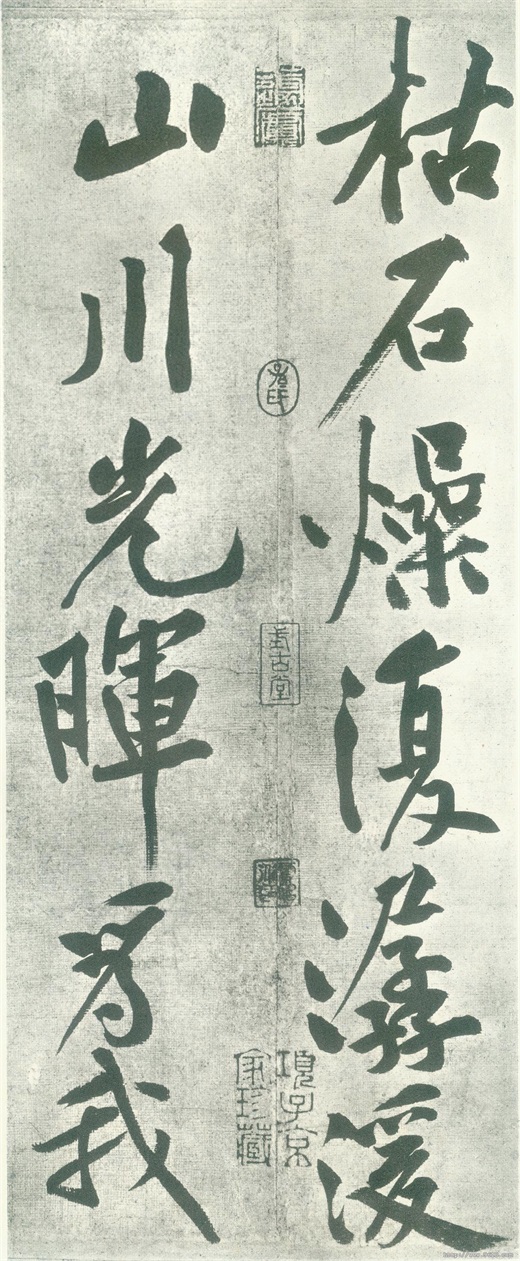 枯石燥復潺湲
山川光暉爲我
式古堂
項子京
家珍藏